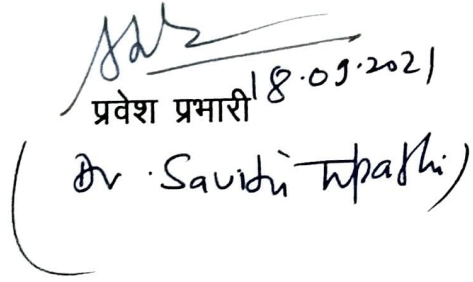 प्रवेश प्रभारी 18.09.2021
(Dr. Savitri Tripathi)